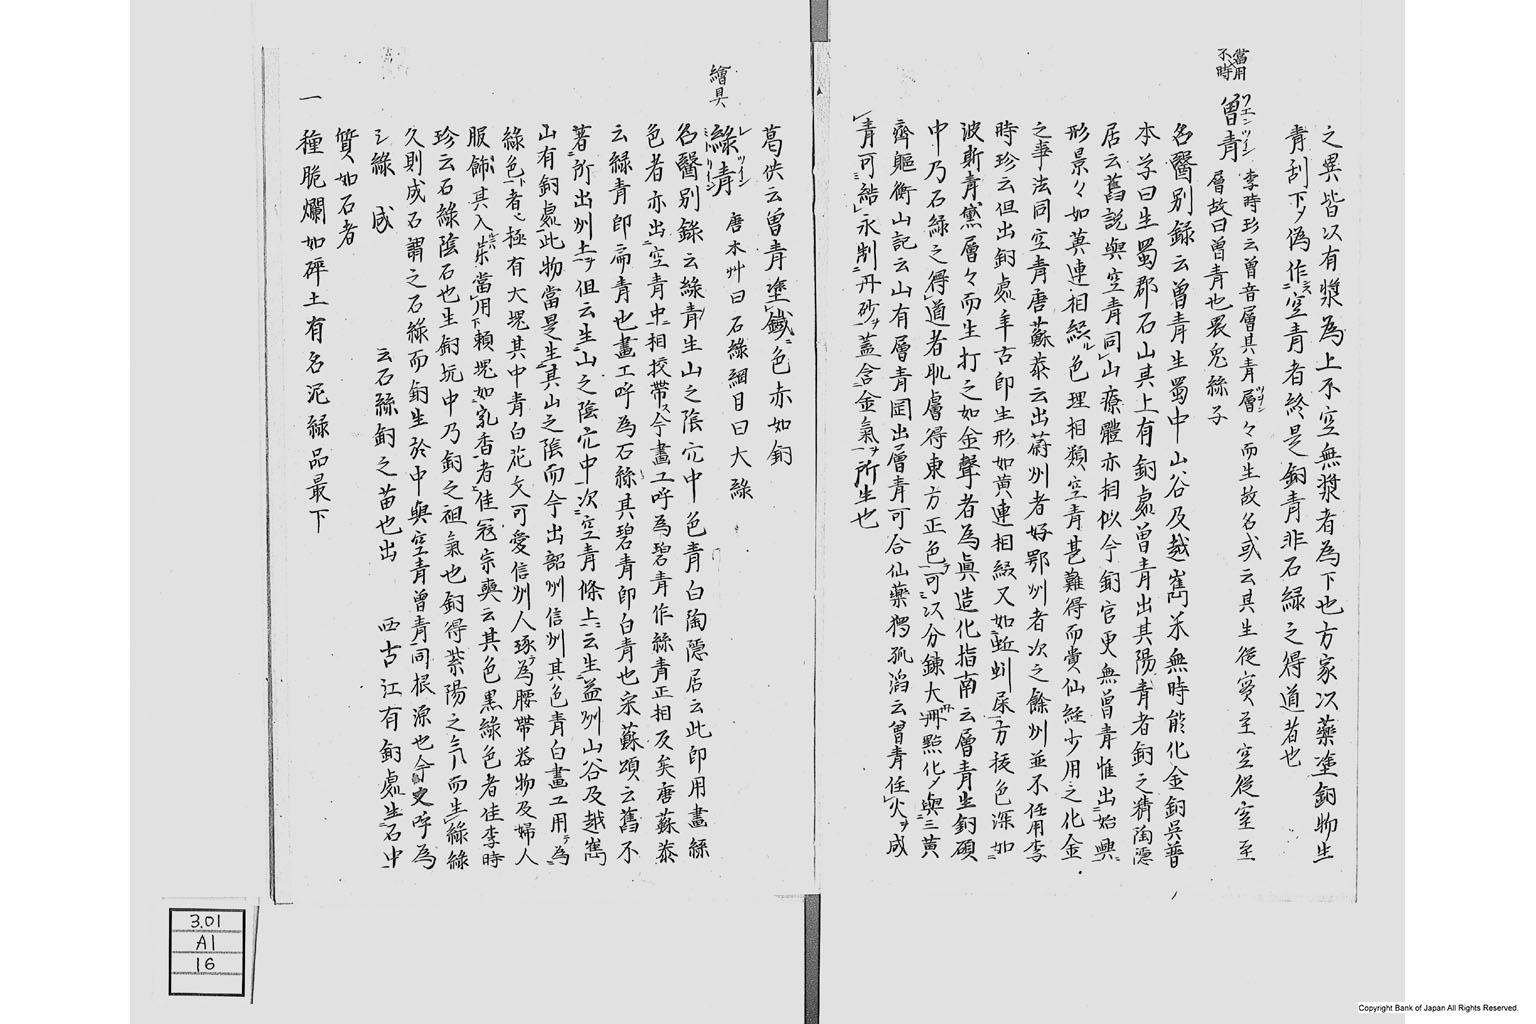 之異皆以有漿為上不空無漿者為下也方家以藥塗銅物生
青刮下〆偽作空青者終是銅青非石緑之得道者也
當用
不時
曽青 李時珍云曽音層其青層々而生故名或云其生從實至空從空至
層故曰曽青也畏兔絲子
名醫别録云曽青生蜀中山谷及越嶲采無時能化金銅呉普
本艸曰生蜀郡石山其上有銅處曽青出其陽青者銅之精陶隱
居云舊説與空青同山療體亦相似今銅官更無曽青惟出始興
形景々如黄連相綴色理相類空青甚難得而貴仙經少用之化金
之事法同空青唐蘇恭云出蔚州者好鄂州者次之餘州並不任用李
時珍云但出銅處年古即生形如黄連相綴又如蚯蚓屎方稜色深如
波斯青黛層々而生打之如金聲者為眞造化指南云層青生銅礦
中乃石緑之得道者肌膚得東方正色可以分錬大丹點化〆與三黄
齊驅衡山記云山有層青岡出層青可合仙藥獨孤滔云曽青住火ヲ成
青可結汞制丹砂ヲ盖含金氣ヲ所生也
葛洪云曽青塗鐵色赤如銅
繪具
緑青 唐本艸曰石緑綱目曰大緑
名醫别錄云緑青生山之陰穴中色青白陶隱居云此即用畫緑
色者亦出空青中相挍帶ス今畫工呼為碧青作緑青正相反矣唐蘇恭
云緑青即扁青也畫工呼為石緑其碧青即白青也宋蘇頌云舊不
著所出州土ヲ但云生山之陰穴中次空青條上云生益州山谷及越嶲
山有銅處此物當是生其山之陰而今出韶州信州其色青白畫工用テ為
緑色ト者極有大塊其中青白花文可愛信州人琢為腰帶器物及婦人
服飾其入藥當用下頼塊如乳香者佳冦宗奭云其色黒緑色者佳李時
珍云石緑陰石也生銅坑中乃銅之祖氣也銅得紫陽之气而生緑緑
久則成石謂之石緑而銅生於中與空青曽青同根源也今更呼為
シ緑 成 云石緑銅之苗也出 西古江有銅處生石中
質如石者
一 種脆爛如碎土有名泥緑品最下
3.01
A1
16
Copyright Bank of Japan All Rights Reserved.